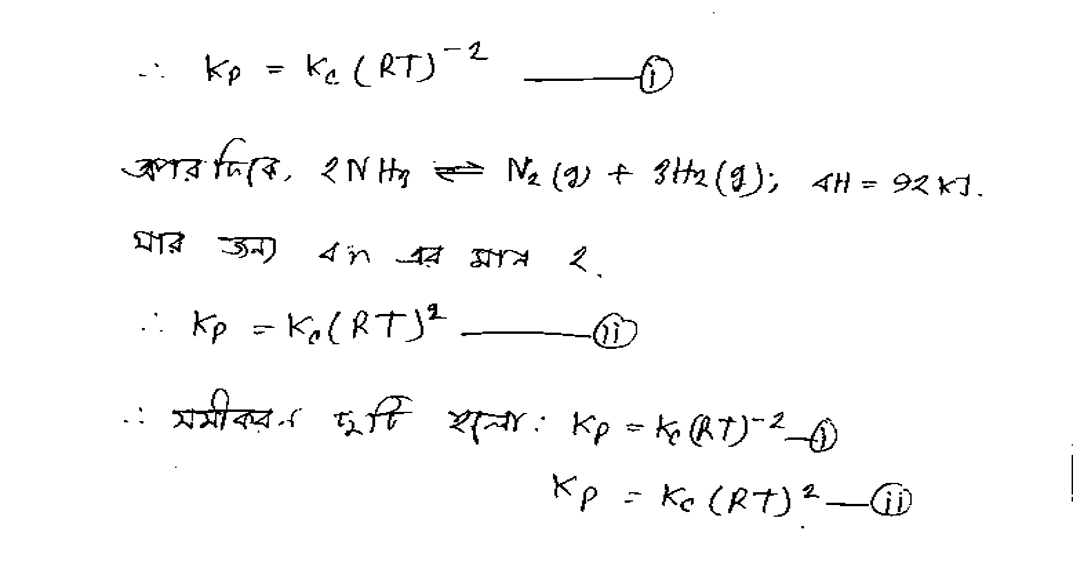 ∴ Kp = Kc (RT)⁻² —— (i)
অপরদিকে, 2NH₃ ⇌ N₂(g) + 3H₂(g); ΔH = 92 kJ.
যার জন্য Δn এর মান 2.
∴ Kp = Kc(RT)² —— (ii)
∴ সমীকরণ দুটি হলো: Kp = Kc(RT)⁻² — (i)
Kp = Kc (RT)² — (ii)